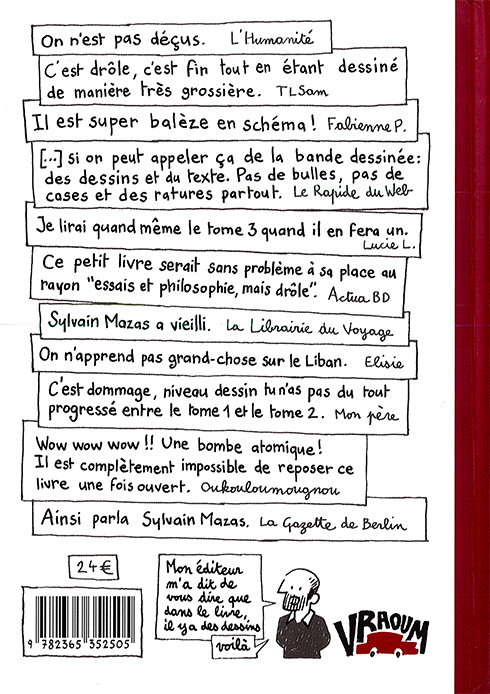 On n'est pas déçus. L'Humanité
C'est drôle, c'est fin tout en étant dessiné
de manière très grossière. TLSam
Il est super balèze en schéma ! Fabienne P.
[...] si on peut appeler ça de la bande dessinée :
des dessins et du texte. Pas de bulles, pas de
cases et des ratures partout. Le Rapide du Web
Je lirai quand même le tome 3 quand il en fera un.
Lucie L.
Ce petit livre serait sans problème à sa place au
rayon "essais et philosophie, mais drôle". Actua BD
Sylvain Mazas a vieilli. La Librairie du Voyage
On n'apprend pas grand-chose sur le Liban. Elisie
C'est dommage, niveau dessin tu n'as pas du tout
progressé entre le tome 1 et le tome 2. Mon père
Wow wow wow !! Une bombe atomique !
Il est complètement impossible de reposer ce
livre une fois ouvert. Oukouloumougnou
Ainsi parla Sylvain Mazas. La Gazette de Berlin
24 €
9 782365 352505
Mon éditeur
m'a dit de
vous dire que
dans le livre,
il y a des dessins
voilà
VRAOUM